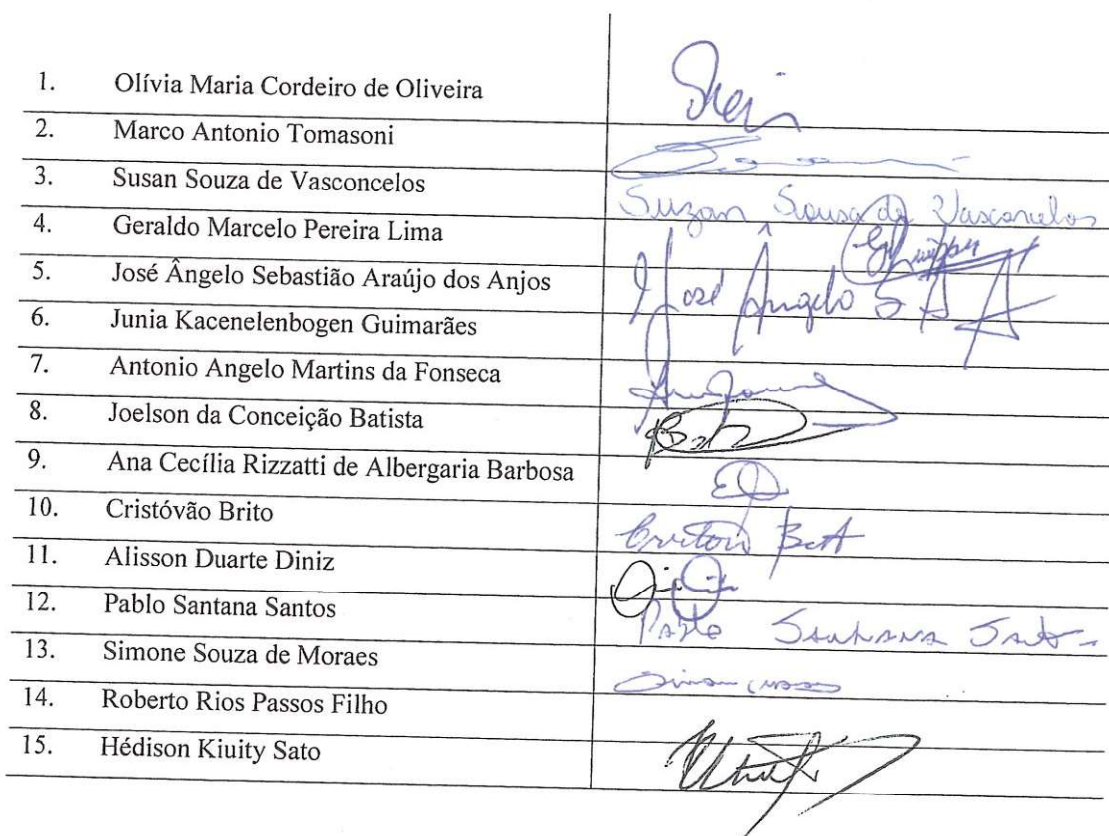 1. Olívia Maria Cordeiro de Oliveira
2. Marco Antonio Tomasoni
3. Susan Souza de Vasconcelos Suzan Sousa de Vasconcelos
4. Geraldo Marcelo Pereira Lima
5. José Ângelo Sebastião Araújo dos Anjos José Ângelo S A A
6. Junia Kacenelenbogen Guimarães
7. Antonio Angelo Martins da Fonseca
8. Joelson da Conceição Batista
9. Ana Cecília Rizzatti de Albergaria Barbosa
10. Cristóvão Brito
11. Alisson Duarte Diniz
12. Pablo Santana Santos Pablo Santana Santos
13. Simone Souza de Moraes
14. Roberto Rios Passos Filho
15. Hédison Kiuity Sato